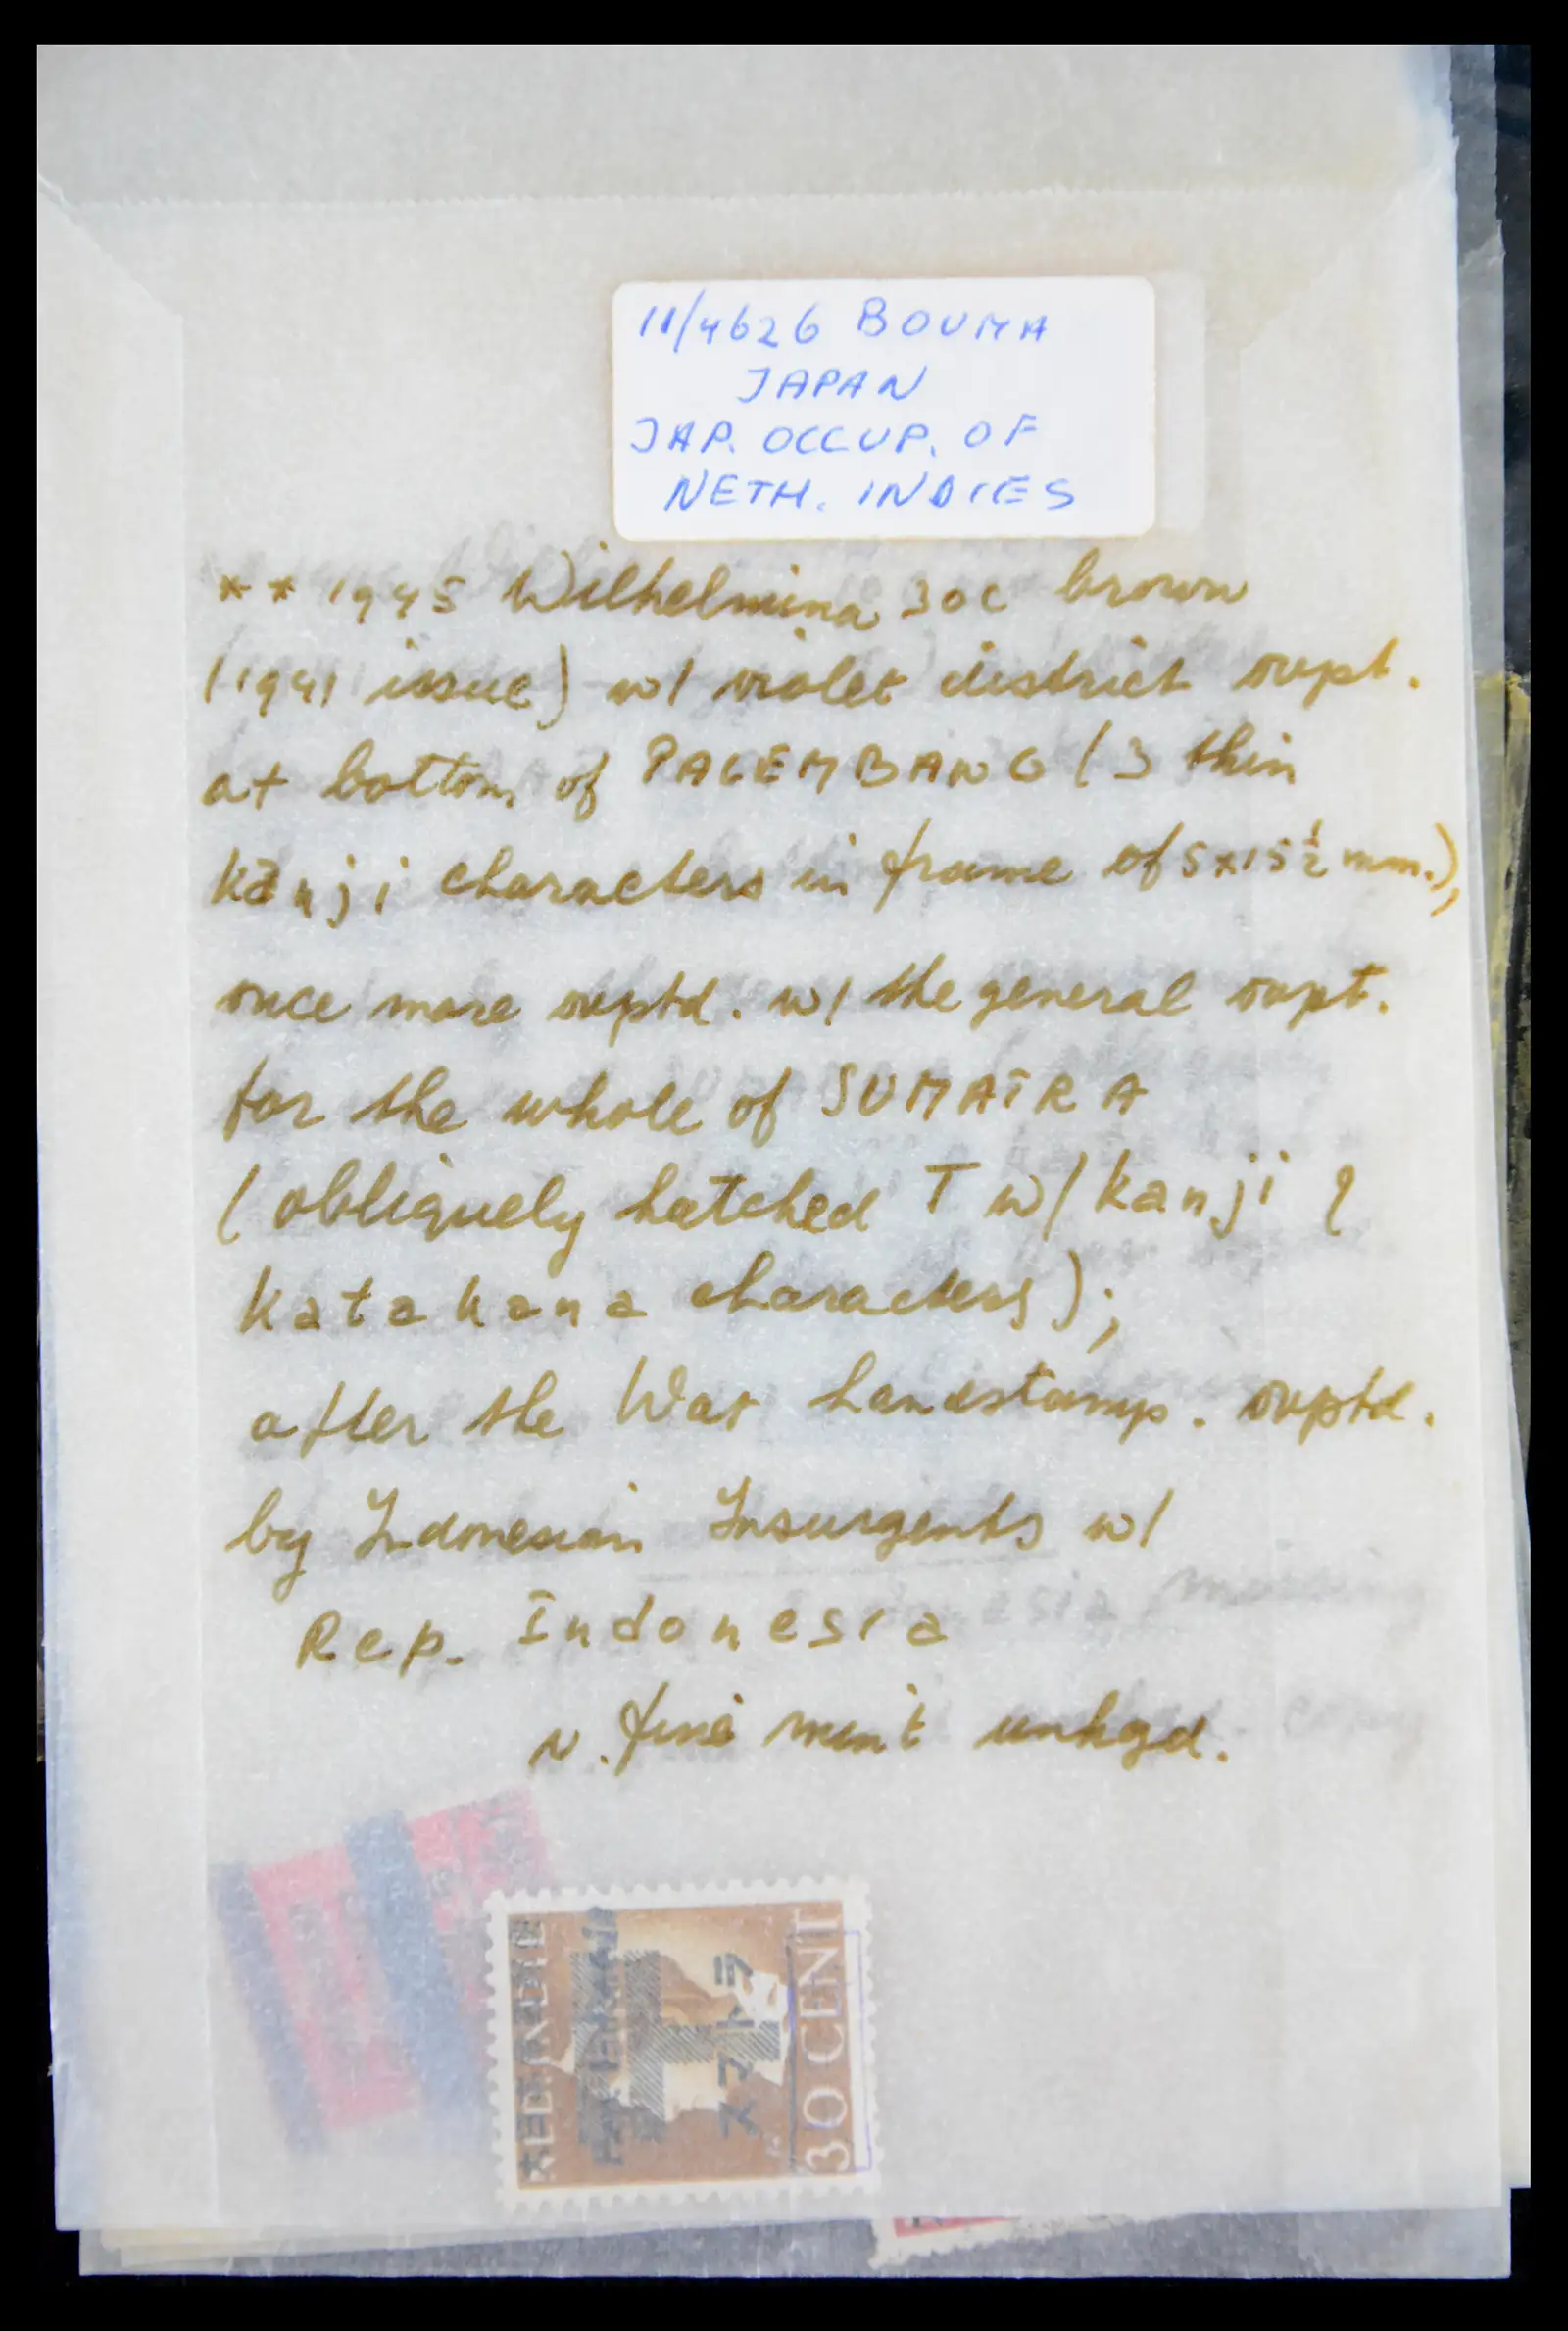 11/4626 BOUMA
JAPAN
JAP. OCCUP. OF
NETH. INDIES
** 1945 Wilhelmina 30c brown
(1941 issue) w/ violet district ovpt.
at bottom of PALEMBANG (3 thin
kanji characters in frame of 5x15½ mm.),
once more ovptd. w/ the general ovpt.
for the whole of SUMATRA
(obliquely hatched T w/ kanji &
katakana characters);
after the War handstamp. ovptd.
by Indonesian Insurgents w/
Rep. Indonesia
v. fine mint unhgd.
スマトラ
30 CENT